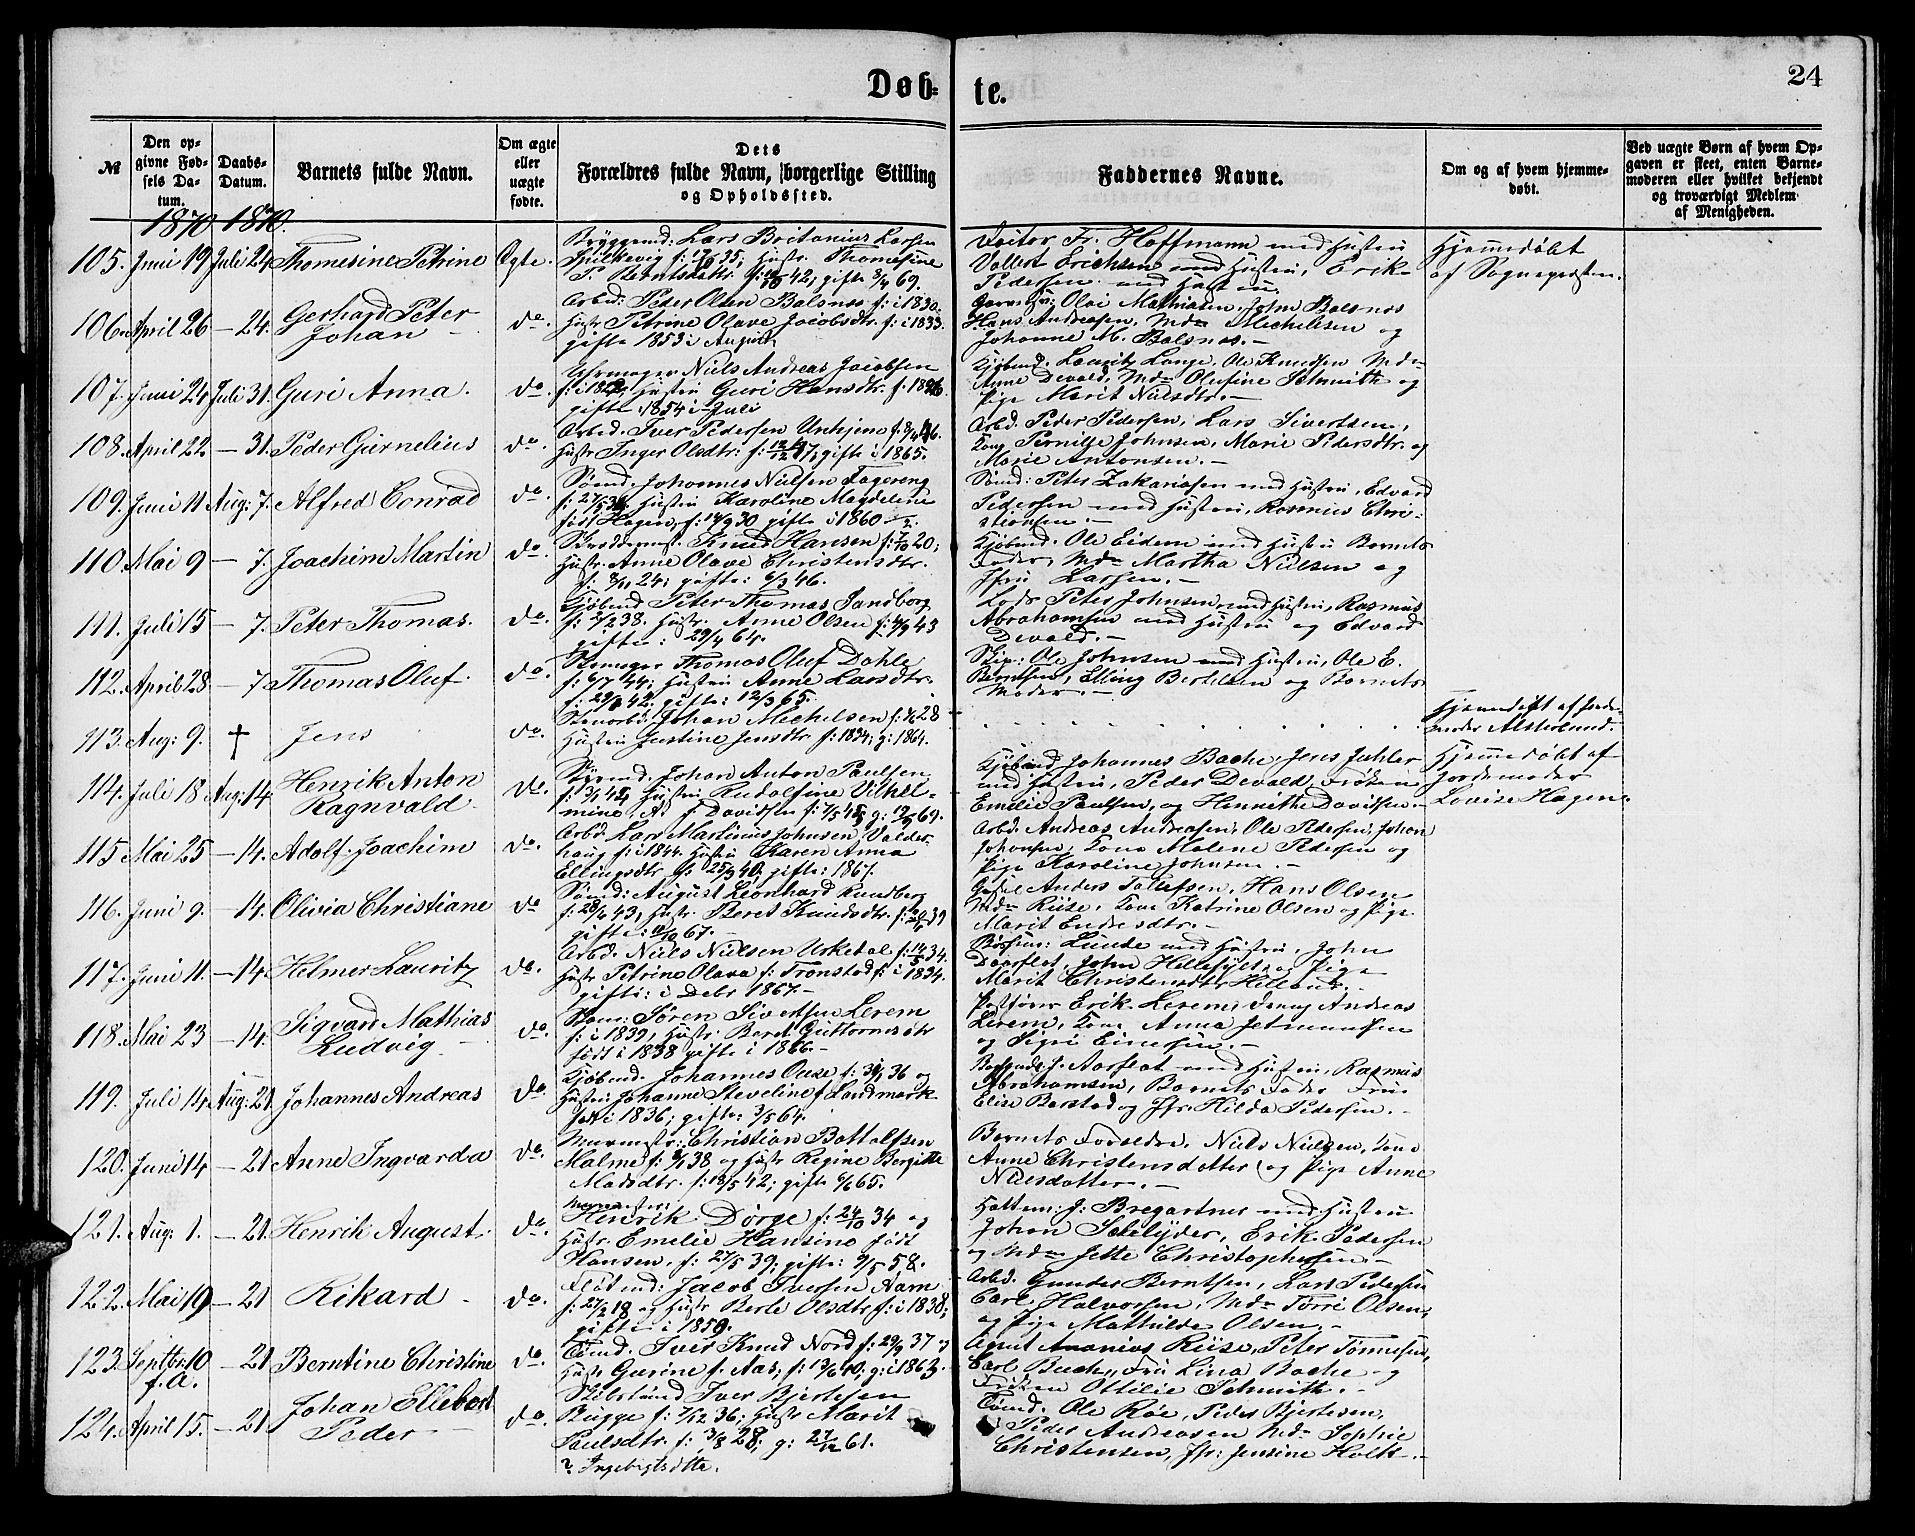 Døb=
te.
24
№
Den op-
givne Fød-
sels Da-
tum.
Daabs-
Datum.
Barnets fulde Navn.
Om ægte
eller
uægte
fødte.
Dets
Forældres fulde Navn, borgerlige Stilling
og Opholdssted.
Faddernes Navne.
Om og af hvem hjemme-
døbt.
Ved uægte Børn af hvem Op-
gaven er skeet, enten Barne-
moderen eller hvilket bekjendt
og troværdigt Medlem
af Menigheden.
1870 1870.
105. Juni 19 Juli 24. Thomesine Petrine Ægte.
Lars Britanius Larsen
Hustr. Thomesine
gift 69.
Fr. Hoffmann med Hustru
Vollert Erichsen med Hustru, Erik
Pedersen med Hustru.
Hjemmedøbt
af Sognepræsten.
106. April 26 — 24. Gerhard Peter
Johan do.
Arbd. Peder Olsen Balsnes f: i 1830.
Hustr Petrine Olave Jacobsdtr. f: i 1833.
gifte 1853 i August
Olai Mathiasen, John Balsnes
Hans Andreasen, Mdm Michelsen og
Johanne M. Balsnes.—
107. Juni 24 Juli 31. Guri Anna. do.
Uhrmager Niels Andreas Jacobsen
Hustru Guri Hansdtr. f: 1826
gifte 1854 i Juli
Kjøbmd. Lauritz Lange, Ole Knudsen Mdm
Anne Devold, Mdm Olufine Schmith og
Pige Marit Nielsdtr.—
108. April 22 — 31. Peder Gurnelius do.
Arbd. Iver Pedersen Unhjem
Hustr Inger Olsdtr: gifte i 1865.
Arbd. Peder Pedersen, Lars Sivertsen,
Kone Pernille Johnsen, Marie Pedersdtr. og
Marie Antonsen.—
109. Juni 11 Aug: 7. Alfred Conrad do.
Sømd. Johannes Nielsen Fagereng
Hustru Karoline Magdelene
født Hagen, f: 14/9 30 gifte i 1860
Sømd: Peter Zakariasen med Hustru, Edvard
Pedersen med Hustru, Rasmus Chri-
stiansen.—
110. Mai 9 — 7. Joachim Martin do.
Skræddermst. Knud Hansen f: 7/10 20;
Hustr. Anne Olave Christensdtr.
f: 8/1 24; gifte: 6/3 46.
Kjøbmd. Ole Eidem med Hustru Barnets
Fader, Mdm Martha Nielsen og
Jfru Larsen.—
111. Juli 15 — 7. Peter Thomas. do.
Kjøbmd Peter Thomas Sandborg
f: 2/2 38. Hustr. Anne Olsen f: 4/9 43
gifte: 29/4 64.
Lods Peter Johnsen med Hustru, Rasmus
Abrahamsen med Hustru og Edvard
Devold.—
112. April 28 — 7 Thomas Oluf. do.
Thomas Oluf Dahle
f: 6/7 44; Hustru Anne Larsdtr.
gifte: 12/3 65.
Skip: Ole Johnsen med Hustru, Ole E.
Berntsen, Elling Bertelsen og Barnets
Moder.—
113. Aug: 9. † Jens do.
Johan Mechelsen
Hustru Justine Jensdtr f: 1834; g: 1864.
Hjemmedøbt af Jorde-
moder
114. Juli 18 Aug: 14. Henrik Anton
Ragnvald do.
Johan Anton Paulsen
Hustr. Rudolfine Vilhel-
mine, A. f. Davidsen
Kjøbmd Johannes Bache, Jens Juhler
med Hustru, Peder Devold, Frøken
Emilie Paulsen, og Henriette Davidsen.—
Hjemmedøbt af
Jordemoder
Lovise Hagen.
115 Mai 25 — 14. Adolf Joachim do.
Arbd. Lars Martinus Johnsen Valder-
haug f: i 1844. Hustru Karen Anna
Ellingsdtr f: 25/3 40, gifte: 1867.
Arbd. Andreas Andreasen, Ole Pedersen, Johan
Johansen, Kone Malene Pedersen og
Pige Karoline Johnsen.—
116. Juni 9. — 14. Olivia Christiane do
Sømd: August Leonhard Rundberg
Hustr. Beret Knudsdtr.
Anders Tollefsen, Hans Olsen
Mdm Riise, Kone Katrine Olsen og Pige
Marit Endresdtr.—
117. Juni 11. — 14. Helmer Lauritz do.
Arbd. Niels Nielsen Urkedal
Hustr Petrine Olava f: Tronstad f: i 1834.
gifte: i Debr 1867.—
Lunde med Hustru, John
Daarflot, John Hellesylt og Pige
Marit Christensdtr Hilland.—
118. Mai 23 — 14. Sigvard Mathias
Ludvig do.
Søren Sivertsen Lerem
f: i 1839, Hustr: Beret Guttormsdtr
født i 1838 gifte i 1866.—
Postfører Erik Lerem, Andreas
Lerem, Kone Anna
og Sigri Einersen.—
119. Juli 14 Aug: 21 Johannes Andreas do.
Kjøbmd. Johannes Ouse
Hustru Johanne Steveline f. Landmark
født i 1836; gifte: 3/5 64.
Aarflot med Hustru, Rasmus
Abrahamsen, Barnets Fader Fru
Elise Barstad og Jfr: Hilda Pedersen.—
120. Juni 14 — 21 Anne Ingvarda do.
Murmstr: Christian Bottolfsen
Malme og Hustr Regine Bergitte
Madsdtr. f: 18/5 42; gifte 6/6 65.
Barnets Forældre, Niels Nielsen, Kone
Anne Christensdatter og Pige Anne
Nielsdatter.—
121. Aug: 1. — 21. Henrik August. do
Henrik Dørge f: 24/10 34 og
Hustr. Emelie Hansine født
Hansen, f: 27/5 39; gifte: 9/5 58.
Hattem: J. Bregartner med Hustru
Johan Schlyder, Erik Pedersen
og Mdm Jette Christophersen.—
122. Mai 19 — 21 Rikard do.
Jacob Iversen Aarn
f: 27/2 18 og Hustr Berte Olsdtr. f: i 1838;
gifte i 1859.
Arbd. Gunder Berntsen, Lars Pedersen
Carl Halvorsen, Mdm Tørri Olsen,
og Pige Mathilde Olsen.—
123. Septbr. 10
f.A. — 21 Berntine Christine do.
Iver Knud Nord f: 29/9 37 og
Hustr Gurine f. Aas; f: 13/6 40; g: i 1863.
Agent Ananias Riise, Peter Tønnesen,
Carl Buch, Fru Lina Bache og
Frøken Ottilie Schmith.—
124. April 15. — 21 Johan Ellebert
Peder do.
Iver Bjertesen
Bugge f: 7/12 36; Hustr Marit
Paulsdtr. f: 3/8 28; g: 27/12 61.
? Ingebrigtsdtte.
Tømd. Ole Røe, Peder Bjertesen,
Peder Andreasen Mdm Sophie
Christensen, Jfr: Jensine Holth.—